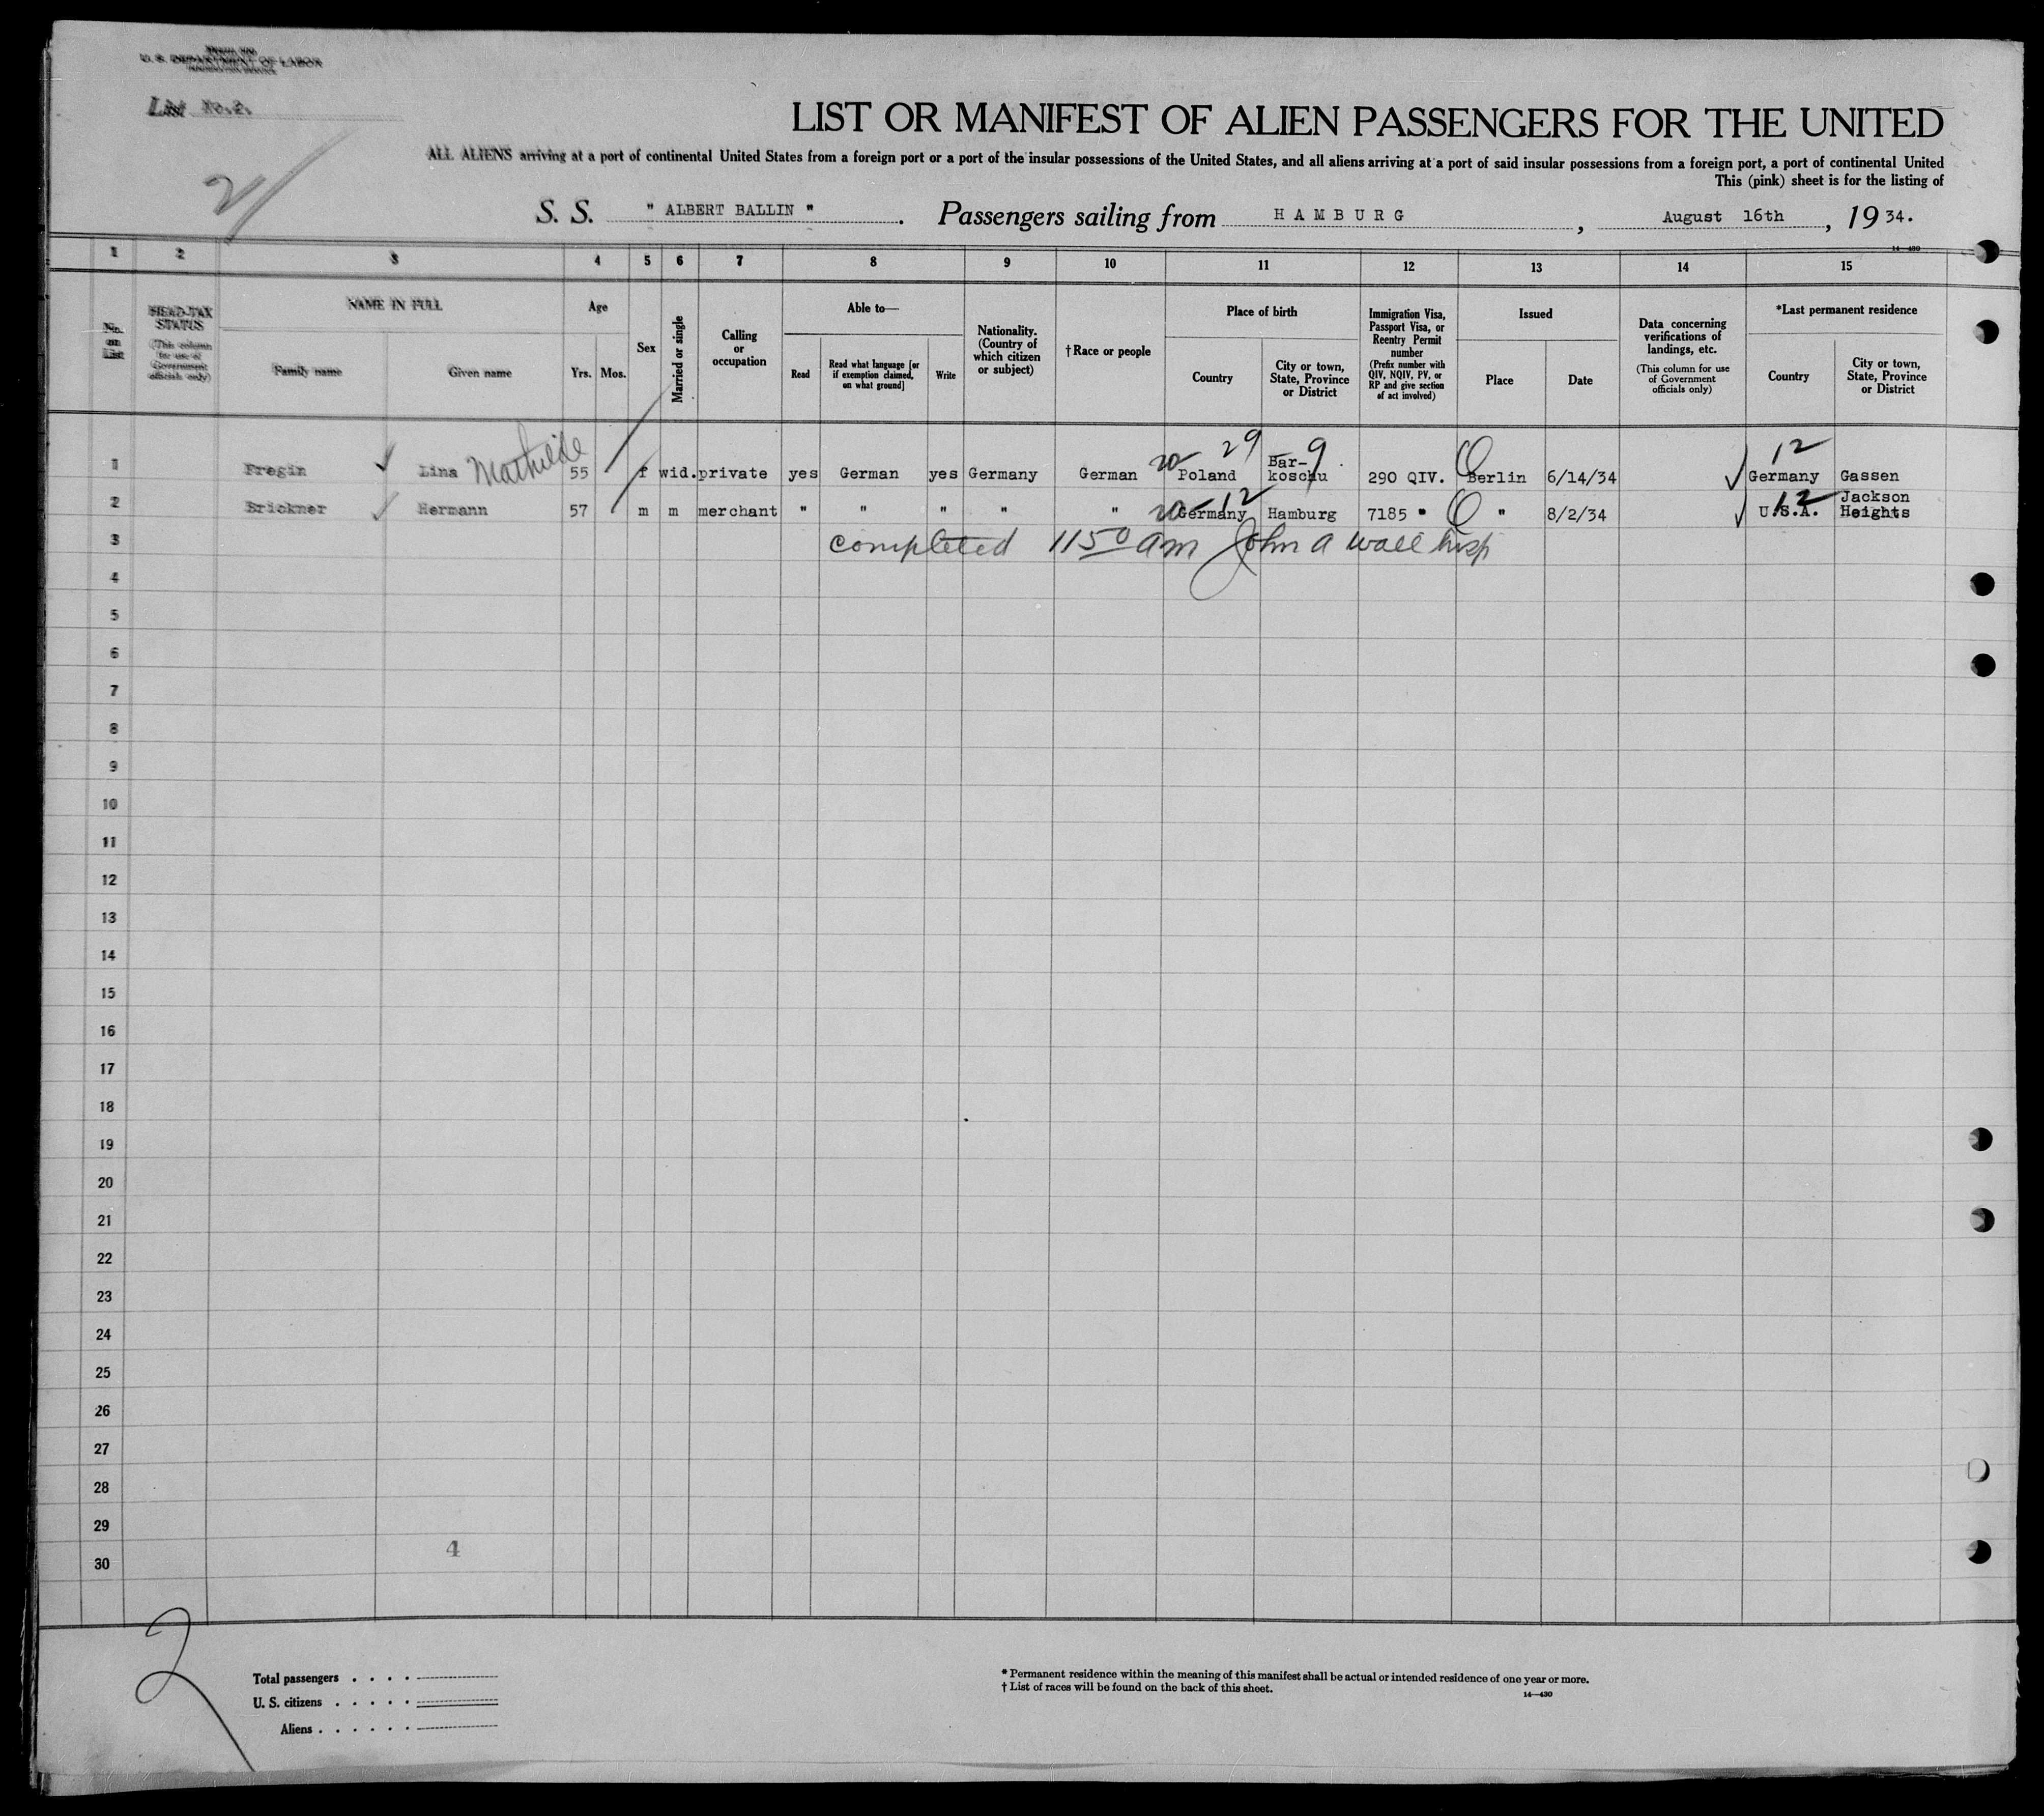 U. S. DEPARTMENT OF LABOR
IMMIGRATION SERVICE
List No.2.
2
LIST OR MANIFEST OF ALIEN PASSENGERS FOR THE UNITED
ALL ALIENS arriving at a port of continental United States from a foreign port or a port of the insular possessions of the United States, and all aliens arriving at a port of said insular possessions from a foreign port, a port of continental United
This (pink) sheet is for the listing of
S. S. " ALBERT BALLIN ". Passengers sailing from HAMBURG, August 16th, 1934.
14—430
1 2 3 4 5 6 7 8 9 10 11 12 13 14 15
No. on List
HEAD-TAX STATUS (This column for use of Government officials only)
NAME IN FULL
Family name Given name
Age
Yrs. Mos.
Sex
Married or single
Calling or occupation
Able to—
Read
Read what language [or if exemption claimed, on what ground]
Write
Nationality. (Country of which citizen or subject)
†Race or people
Place of birth
Country
City or town, State, Province or District
Immigration Visa, Passport Visa, or Reentry Permit number (Prefix number with QIV, NQIV, PV, or RP and give section of act involved)
Issued
Place Date
Data concerning verifications of landings, etc. (This column for use of Government officials only)
*Last permanent residence
Country
City or town, State, Province or District
20 29 9 12
1 Fregin Lina Mathilde 55 f wid. private yes German yes Germany German Poland Bar-koschu 290 QIV. Berlin 6/14/34 Germany Gassen
20 12 12
2 Brickner Hermann 57 m m merchant " " " " " Germany Hamburg 7185 " " 8/2/34 U.S.A. Jackson Heights
3 completed 1150 am John A Wall Insp
4
5
6
7
8
9
10
11
12
13
14
15
16
17
18
19
20
21
22
23
24
25
26
27
28
29
4
30
2
Total passengers . . . .
U. S. citizens . . . . .
Aliens . . . . . .
* Permanent residence within the meaning of this manifest shall be actual or intended residence of one year or more.
† List of races will be found on the back of this sheet.
14—430